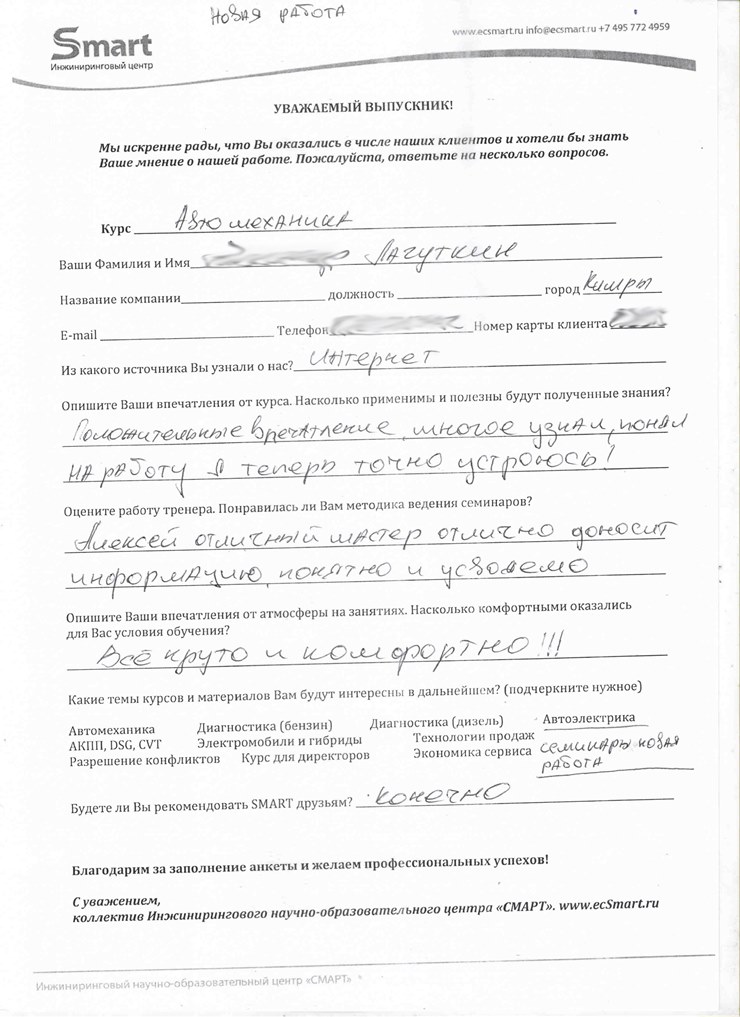 Новая работа
Smart
Инжиниринговый центр
www.ecsmart.ru info@ecsmart.ru +7 495 772 4959
УВАЖАЕМЫЙ ВЫПУСКНИК!
Мы искренне рады, что Вы оказались в числе наших клиентов и хотели бы знать
Ваше мнение о нашей работе. Пожалуйста, ответьте на несколько вопросов.
Курс Автомеханика
Ваши Фамилия и Имя Лагуткин
Название компании должность город Кимры
E-mail Телефон Номер карты клиента
Из какого источника Вы узнали о нас? Интернет
Опишите Ваши впечатления от курса. Насколько применимы и полезны будут полученные знания?
Положительные впечатление, многое узнал, понял
на работу я теперь точно устроюсь!
Оцените работу тренера. Понравилась ли Вам методика ведения семинаров?
Алексей отличный мастер отлично доносит
информацию, понятно и
Опишите Ваши впечатления от атмосферы на занятиях. Насколько комфортными оказались
для Вас условия обучения?
Всё круто и комфортно!!!
Какие темы курсов и материалов Вам будут интересны в дальнейшем? (подчеркните нужное)
Автомеханика Диагностика (бензин) Диагностика (дизель) Автоэлектрика
АКПП, DSG, CVT Электромобили и гибриды Технологии продаж
Разрешение конфликтов Курс для директоров Экономика сервиса семинары новая
работа
Будете ли Вы рекомендовать SMART друзьям? Конечно
Благодарим за заполнение анкеты и желаем профессиональных успехов!
С уважением,
коллектив Инжинирингового научно-образовательного центра «СМАРТ». www.ecSmart.ru
Инжиниринговый научно-образовательный центр «СМАРТ»